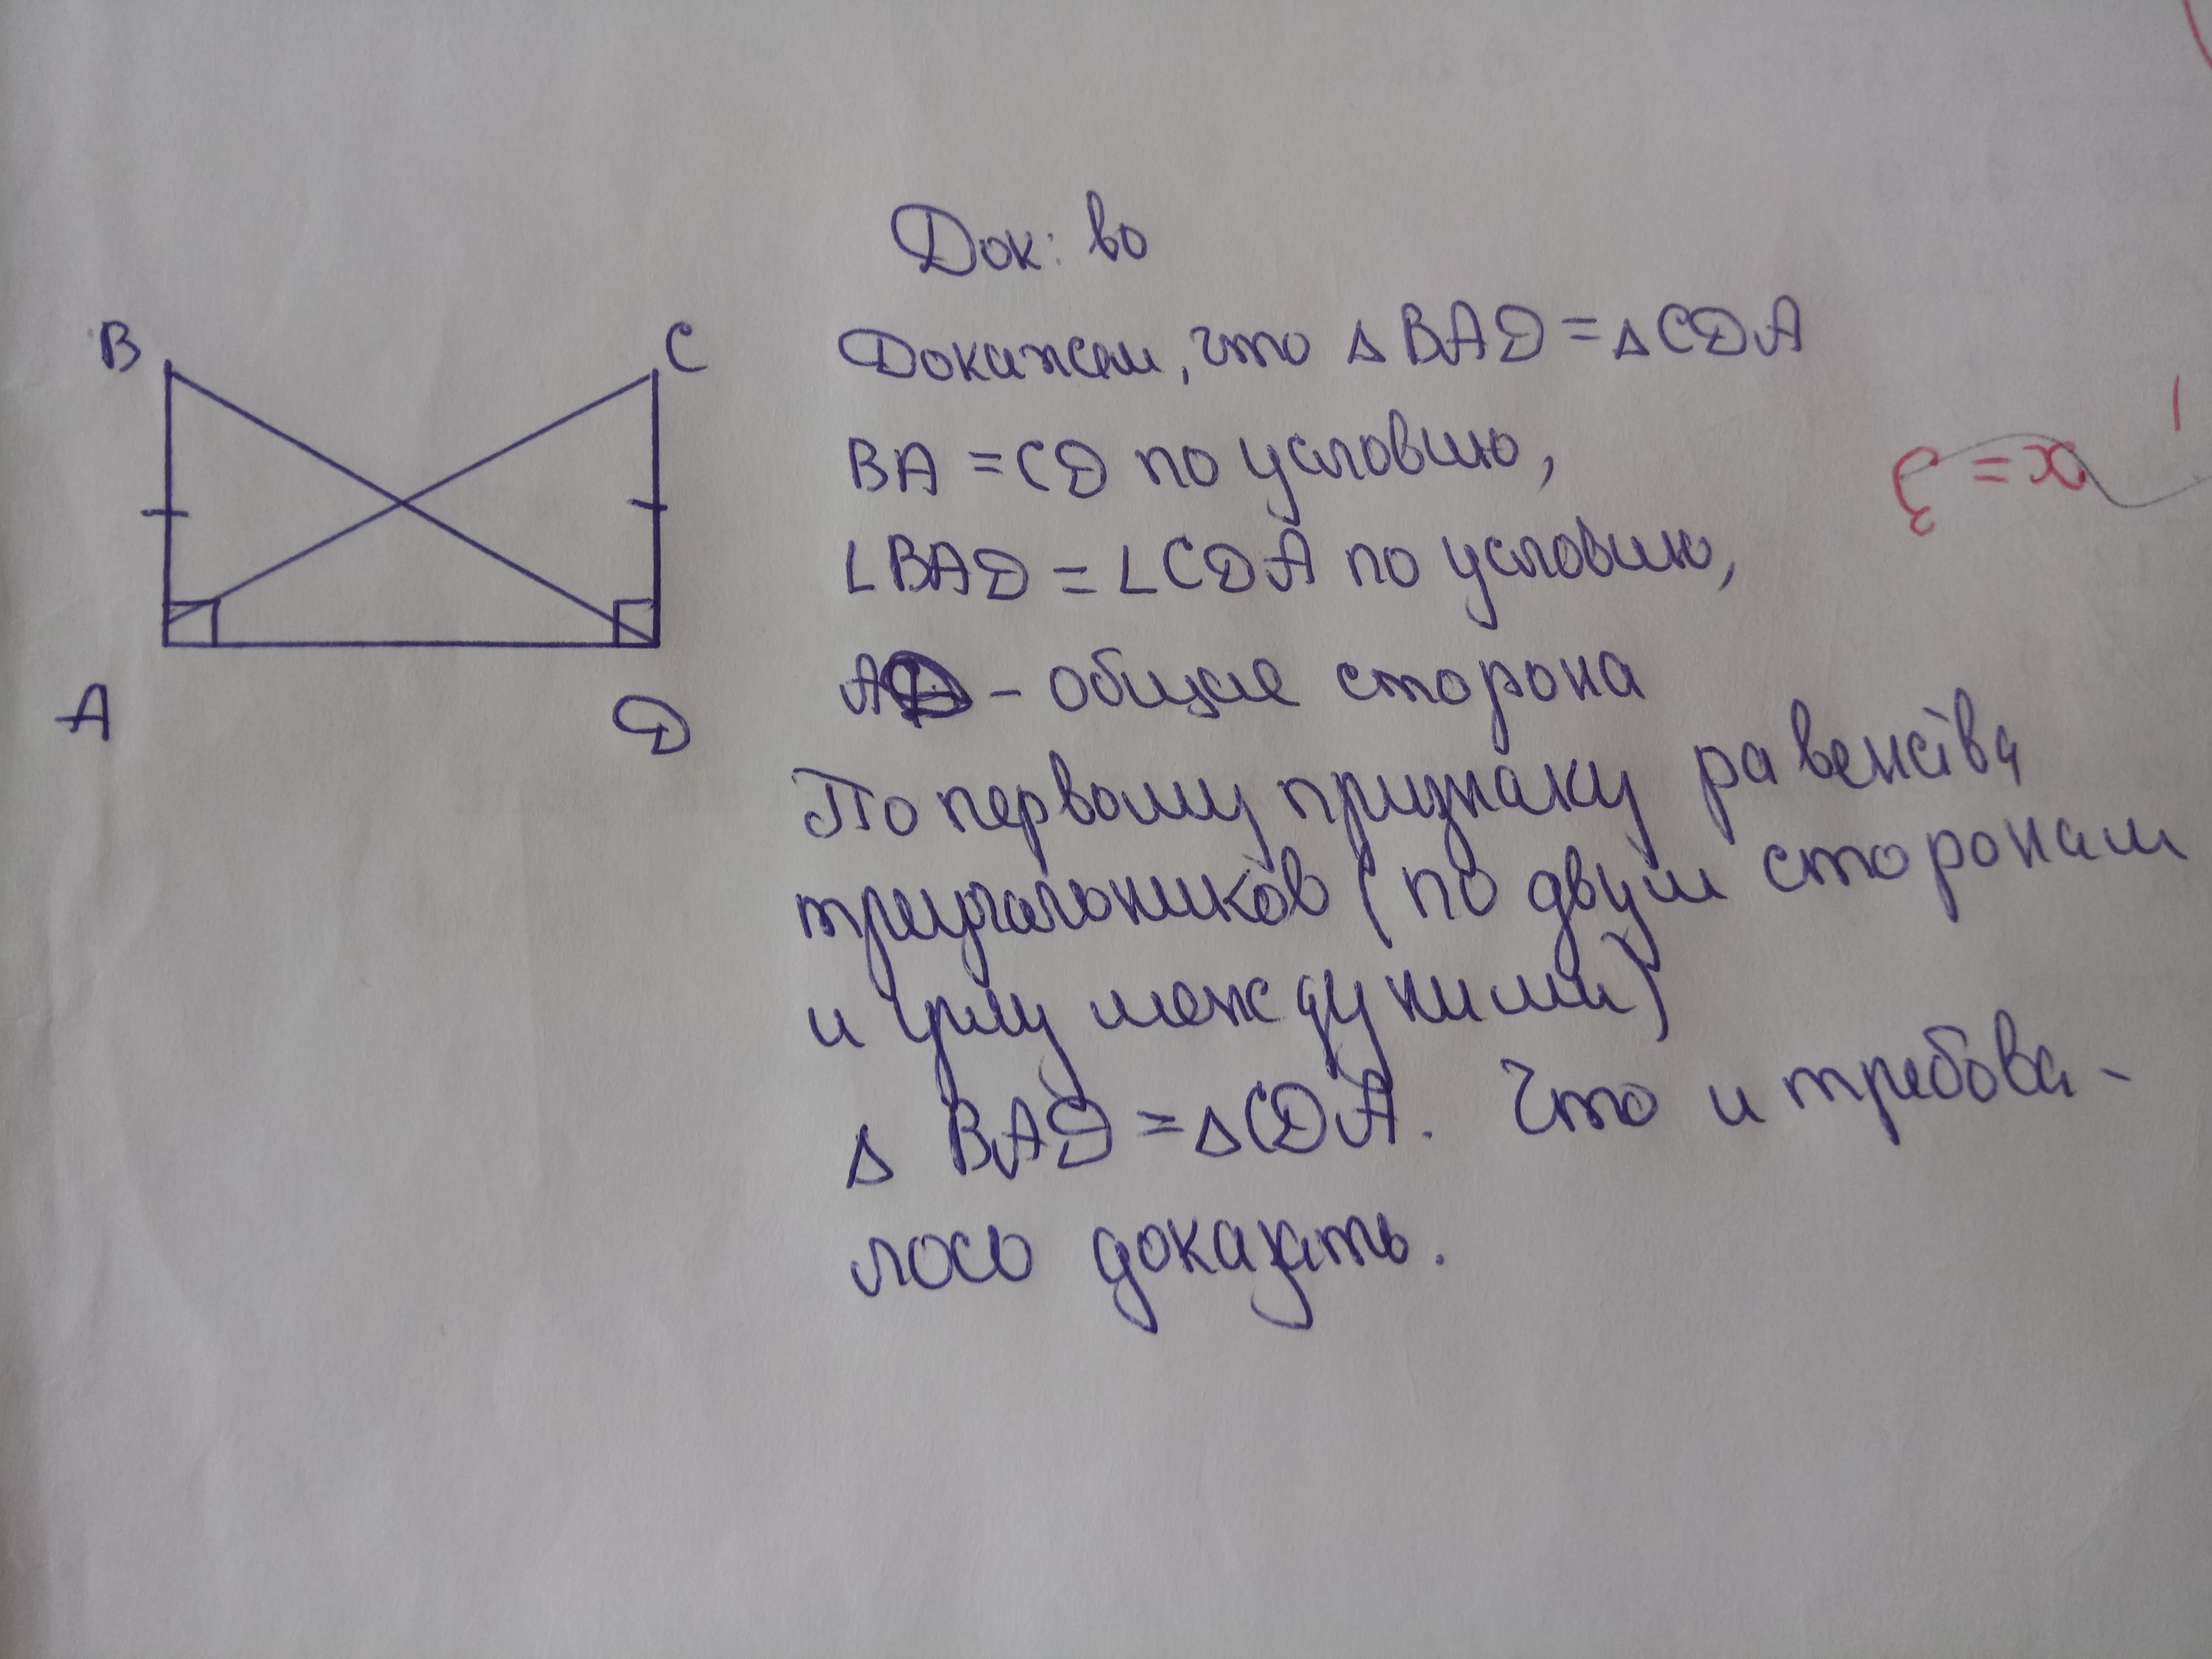 B
C
A
D
Док: во
Докажем, что △ BAD = △ CDA
BA = CD по условию,
∠BAD = ∠CDA по условию,
AD - общая сторона
По первому признаку равенства
треугольников (по двум сторонам
и углу между ними)
△ BAD = △CDA. Что и требова-
лось доказать.
x = 3